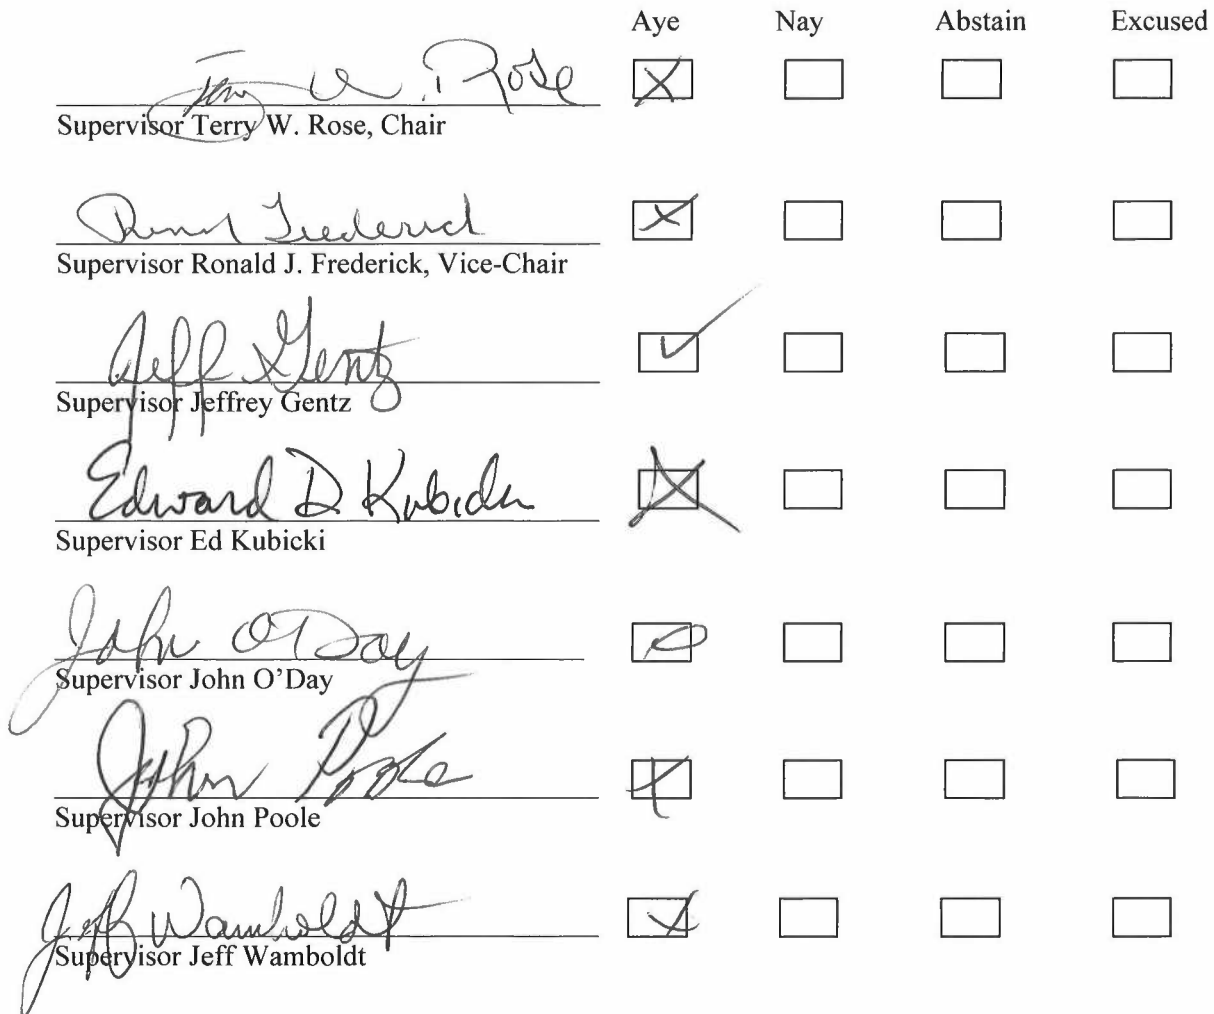 Aye Nay Abstain Excused
Terry W. Rose
Supervisor Terry W. Rose, Chair
Ronald Frederick
Supervisor Ronald J. Frederick, Vice-Chair
Jeff Gentz
Supervisor Jeffrey Gentz
Edward D. Kubicki
Supervisor Ed Kubicki
John O'Day
Supervisor John O'Day
John Poole
Supervisor John Poole
Jeff Wamboldt
Supervisor Jeff Wamboldt